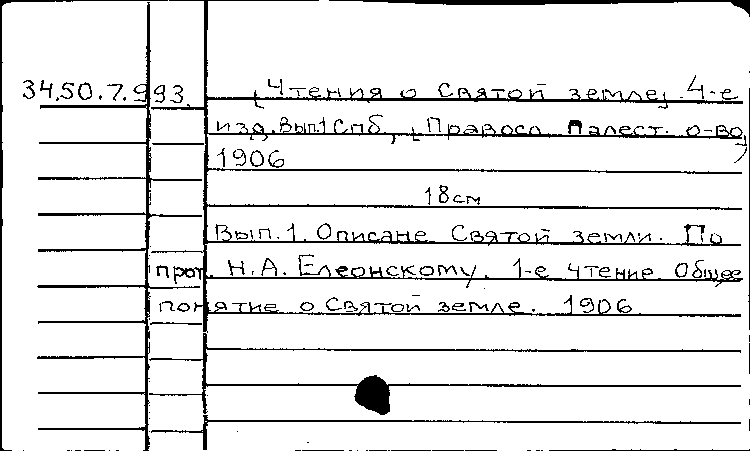 34.50.7.993. [Чтения о Святой земле]. 4-е
изд. Вып.1 Спб., [Правосл. Палест. о-во,
1906
18 см
Вып.1. Описане Святой земли. По
прот. Н.А. Елеонскому. 1-е чтение Общее
понятие о Святой земле. 1906